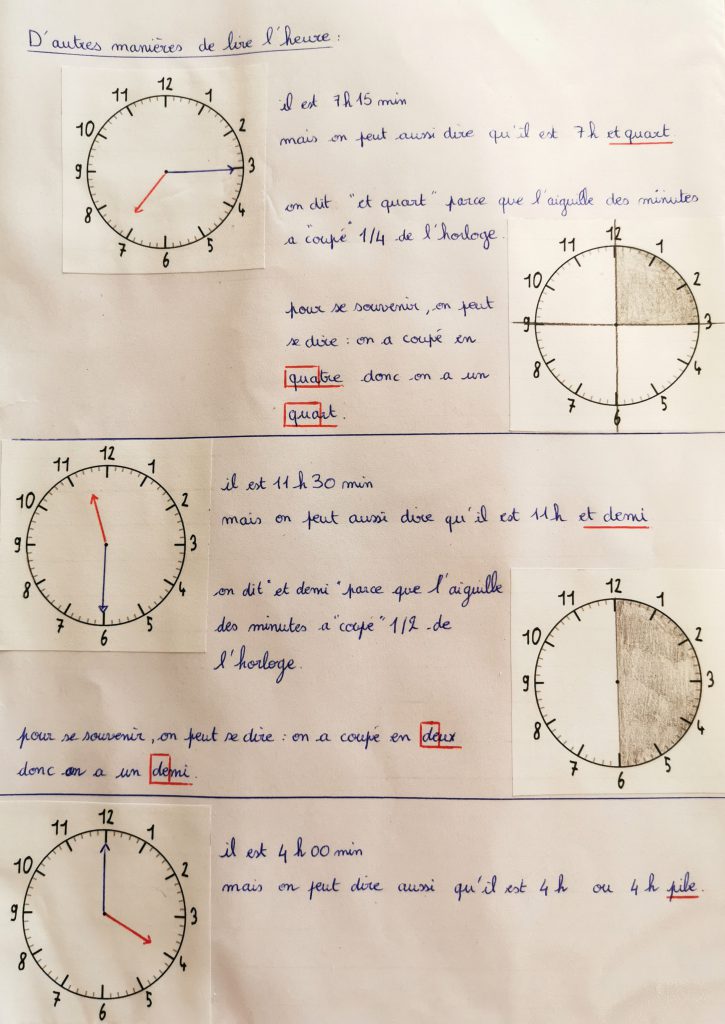 D'autres manières de lire l'heure :
12
11 1
10 2
9 3
8 4
7 5
6
il est 7h15 min
mais on peut aussi dire qu'il est 7h et quart
on dit "et quart" parce que l'aiguille des minutes
a "coupé" 1/4 de l'horloge.
12
11 1
10 2
9 3
8 4
7 5
6
pour se souvenir, on peut
se dire : on a coupé en
quatre donc on a un
quart.
12
11 1
10 2
9 3
8 4
7 5
6
il est 11h30 min
mais on peut aussi dire qu'il est 11h et demi
on dit "et demi" parce que l'aiguille
des minutes a "coupé" 1/2 de
l'horloge.
12
11 1
10 2
9 3
8 4
7 5
6
pour se souvenir, on peut se dire : on a coupé en deux
donc on a un demi.
12
11 1
10 2
9 3
8 4
7 5
6
il est 4h00 min
mais on peut dire aussi qu'il est 4h ou 4h pile.